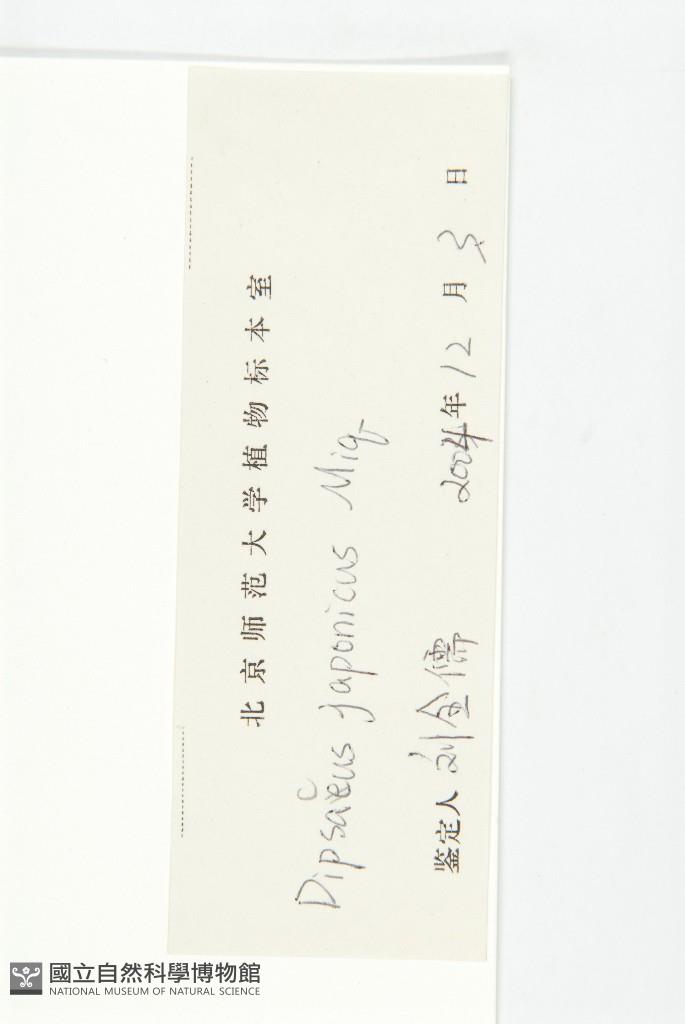 北京师范大学植物标本室
Dipsacus japonicus Miq
鉴定人 刘全儒 2004年12月3日
國立自然科學博物館
NATIONAL MUSEUM OF NATURAL SCIENCE